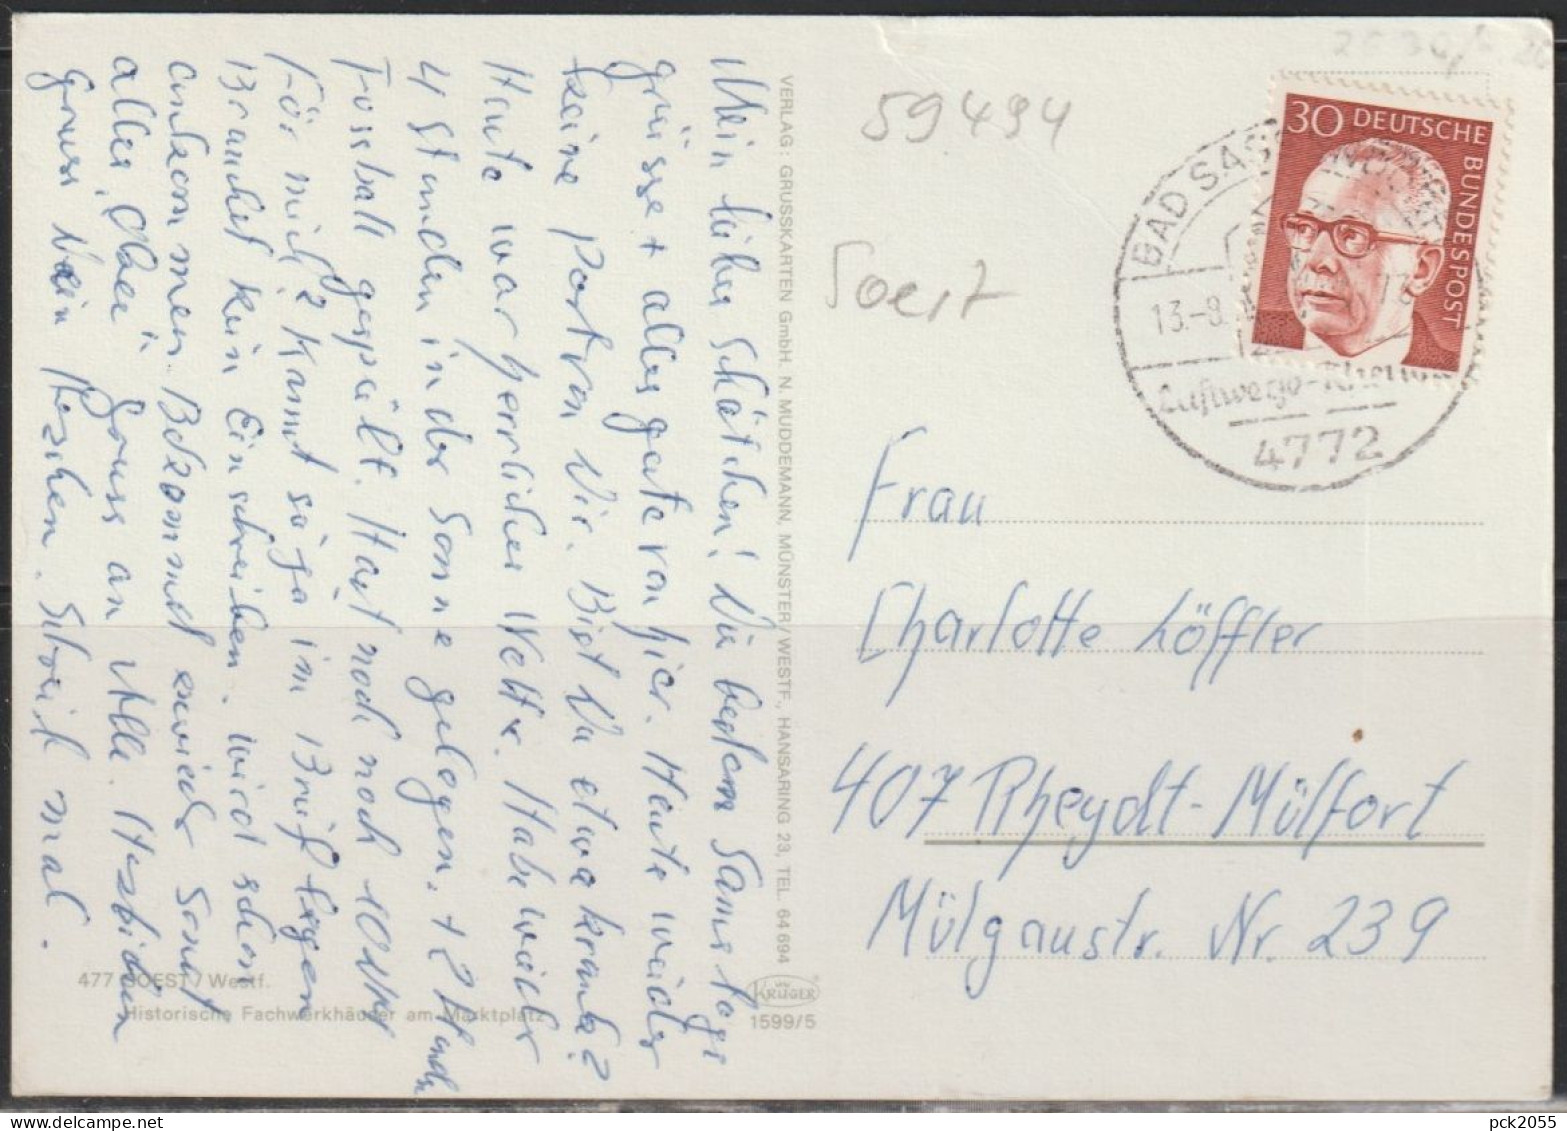 Mein liber Schätchen! Die besten Samstags
grüsse + alles gute von hier. Heute wieder
keine Post von Dir. Bist Du etwa krank?
Heute war herrliches Wetter. Habe wieder
4 Stunden in der Sonne gelegen. + 2 Stunden
Fossball gespielt. Hast noch noch 10
für mich? Kannst sie ja im Brief legen
Brauchst kein Einschreiben. wird schon
ankommen. Bekommst wieder
alles, Gruss an Alle. Herzlichen
Gruss Dein Herzchen. Schreib mal.
VERLAG: GRUSSKARTEN GmbH. N. MUDDEMANN, MÜNSTER/WESTF., HANSARING 23, TEL. 64 694
477 SOEST / Westf.
Historische Fachwerkhäuser am Marktplatz
KRÜGER
1599/5
59494
Soest
30 DEUTSCHE BUNDESPOST
BAD SASSENDORF
13.-9.
4772
Frau
Charlotte Löffler
407 Rheydt-Mülfort
Mülgaustr. Nr. 239
pck2055